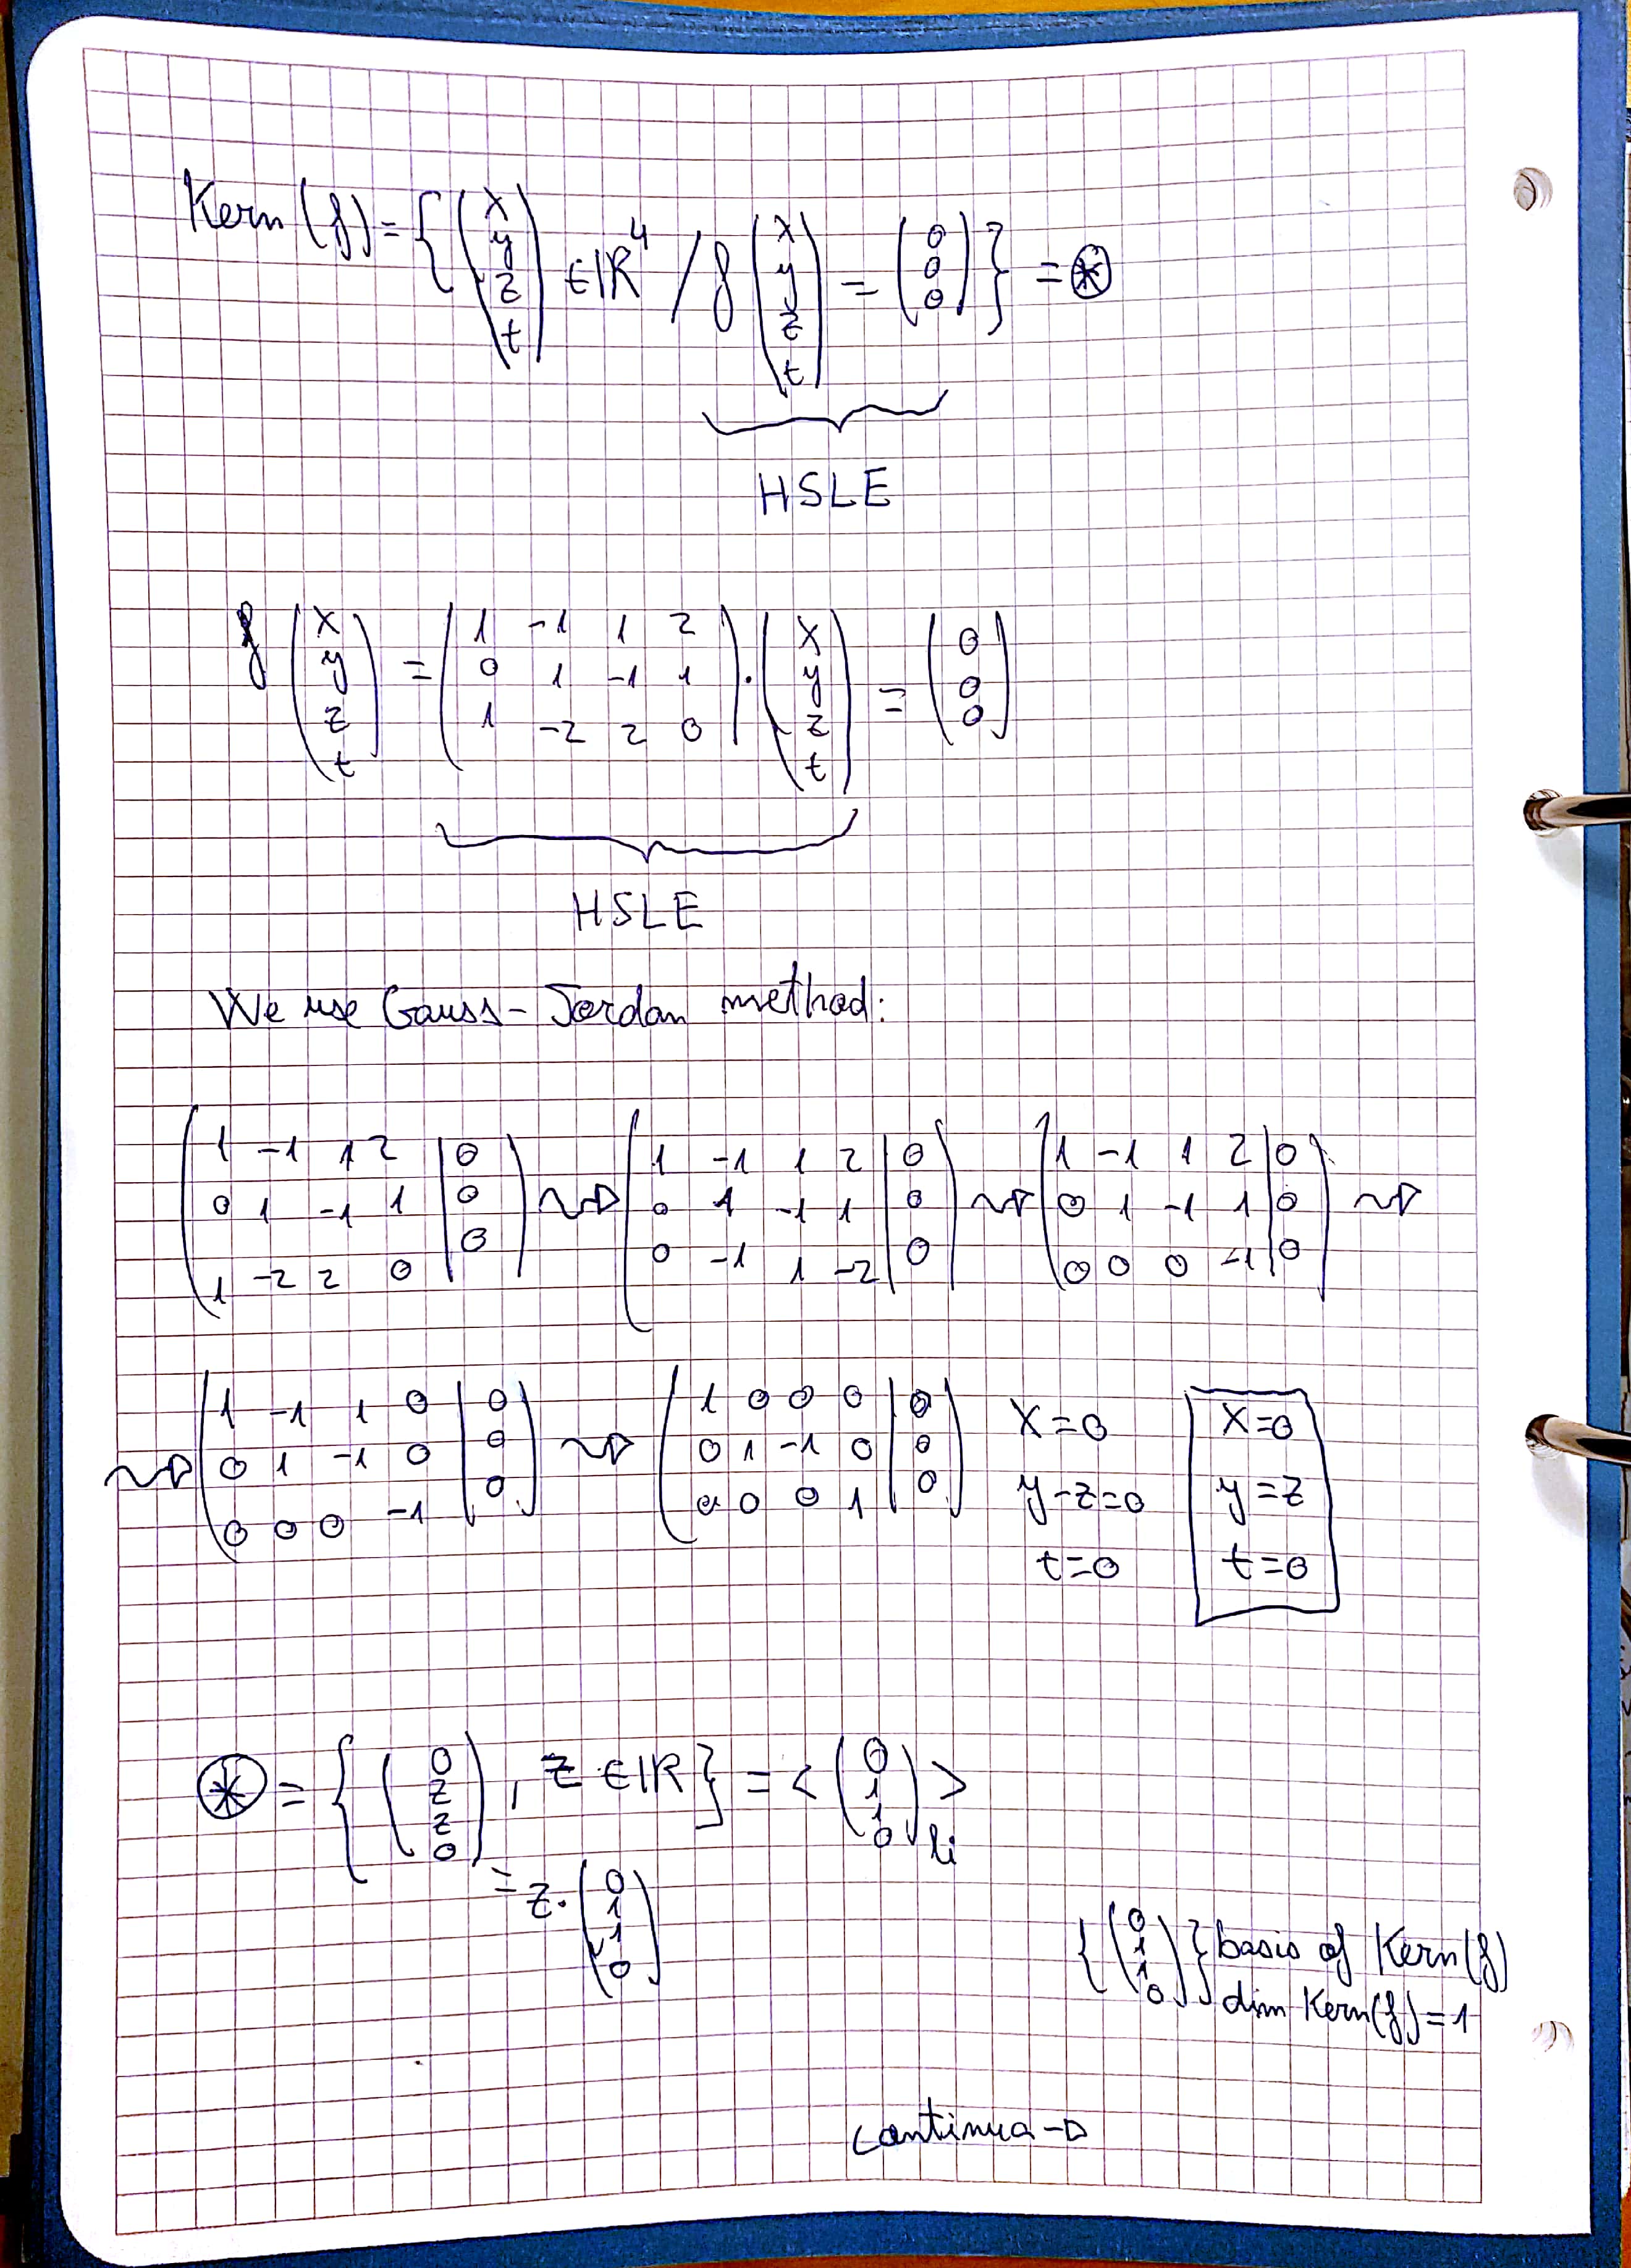 Kern (f) = { (x y z t) ∈ ℝ⁴ / f (x y z t) = (0 0 0) } = ⊛
HSLE
f (x y z t) = (1 -1 1 2 / 0 1 -1 1 / 1 -2 2 0) · (x y z t) = (0 0 0)
HSLE
We use Gauss-Jordan method:
(1 -1 1 2 | 0 / 0 1 -1 1 | 0 / 1 -2 2 0 | 0) ⇝ (1 -1 1 2 | 0 / 0 1 -1 1 | 0 / 0 -1 1 -2 | 0) ⇝ (1 -1 1 2 | 0 / 0 1 -1 1 | 0 / 0 0 0 -1 | 0) ⇝
⇝ (1 -1 1 0 | 0 / 0 1 -1 0 | 0 / 0 0 0 -1 | 0) ⇝ (1 0 0 0 | 0 / 0 1 -1 0 | 0 / 0 0 0 1 | 0)
x=0
y-z=0
t=0
x=0
y=z
t=0
⊛ = { (0 z z 0), z ∈ ℝ } = < (0 1 1 0) > li
= z · (0 1 1 0)
{ (0 1 1 0) } basis of Kern(f)
dim Kern(f)=1
continua →